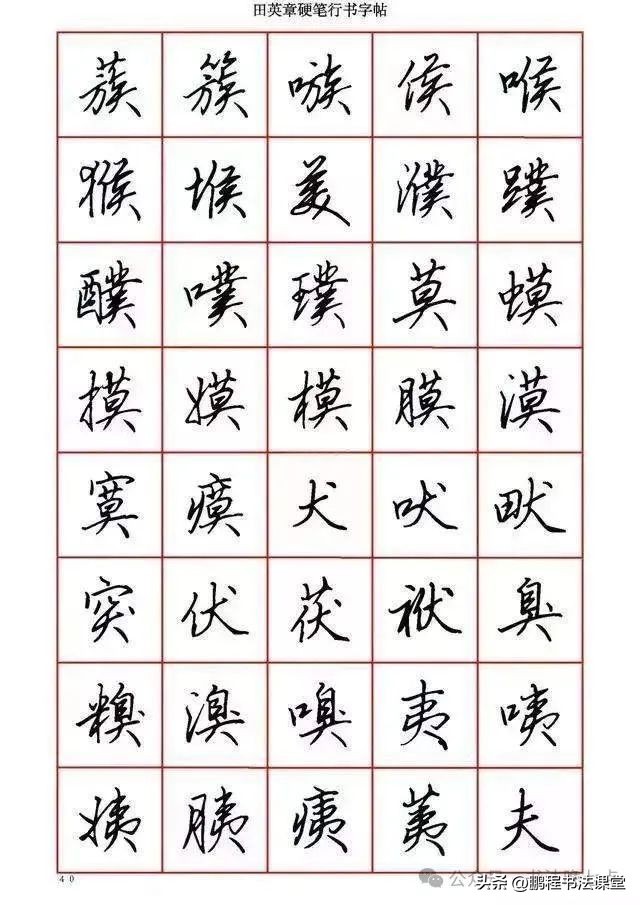 田英章硬笔行书字帖
蔟 簇 嗾 侯 喉
猴 堠 美 濮 蹼
醭 噗 璞 莫 蟆
摸 嫫 模 膜 漠
寞 瘼 犬 吠 畎
突 伏 茯 袱 臭
糗 溴 嗅 夷 咦
姨 胰 痍 荑 夫
40
头条 @鹏程书法课堂